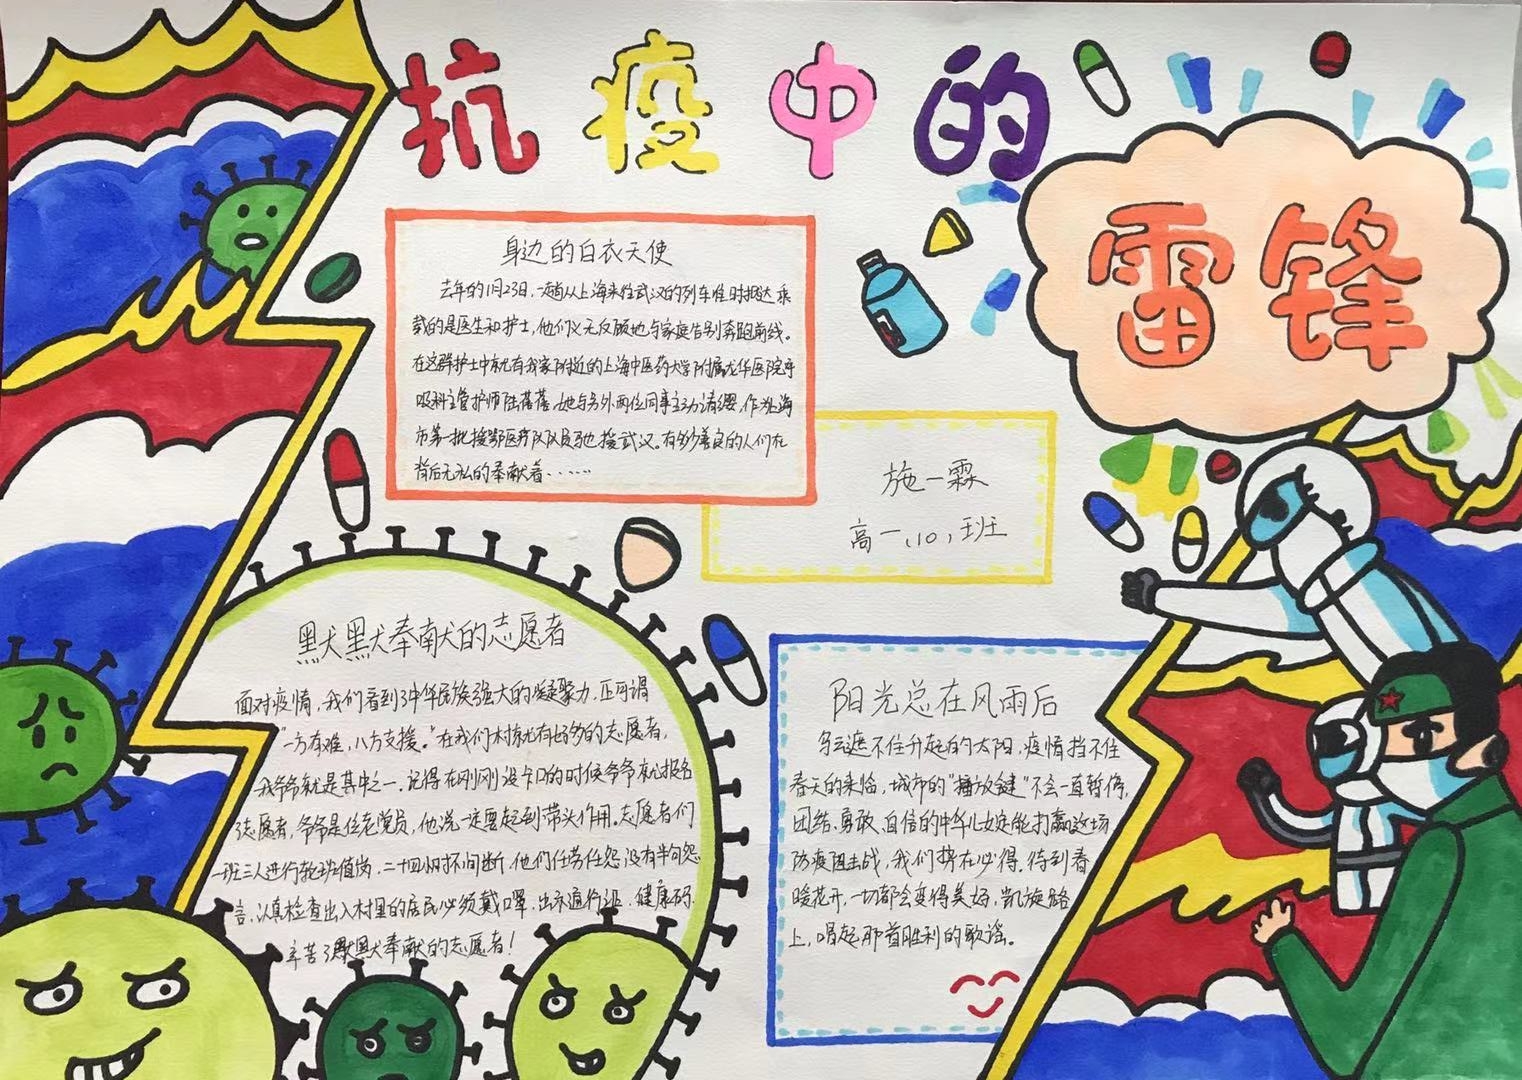 抗疫中的
雷锋
身边的白衣天使
去年的1月23日,一趟从上海来往武汉的列车准时抵达乘
载的是医生和护士,他们义无反顾地与家庭告别奔跑前线。
在这群护士中就有我家附近的上海中医药大学附属龙华医院呼
吸科主管护师陆蓓蓓,她与另外两位同事主动请缨,作为上海
市第一批援鄂医疗队队员驰援武汉。有多少善良的人们在
背后无私的奉献着……
施一霖
高一,10,班
默默奉献的志愿者
面对疫情,我们看到了中华民族强大的凝聚力,正可谓
"一方有难,八方支援。"在我们村就有好多的志愿者,
我爷爷就是其中之一。记得在刚刚设卡口的时候爷爷就报名
志愿者,爷爷是位老党员,他说一定要起到带头作用。志愿者们
一班三人进行轮班值岗,二十四小时不间断,他们任劳任怨,没有半句怨
言,认真检查出入村里的居民必须戴口罩,出示通行证,健康码,
辛苦了默默奉献的志愿者!
阳光总在风雨后
乌云遮不住升起的太阳,疫情挡不住
春天的来临,城市的"播放键"不会一直暂停,
团结、勇敢、自信的中华儿女定能打赢这场
防疫阻击战,我们势在必得。待到春
暖花开,一切都会变得美好,凯旋路
上,唱起那首胜利的歌谣。